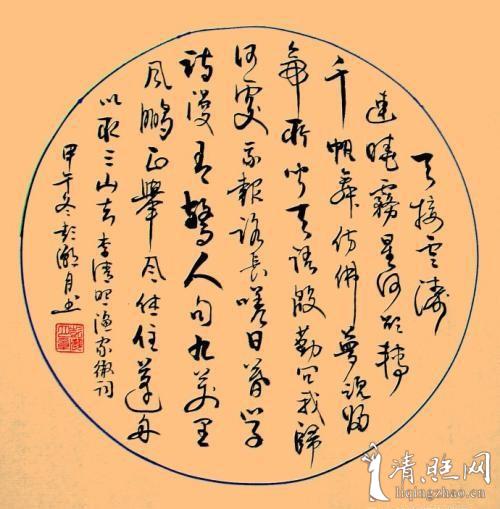 天接云涛
連曉霧星河欲轉
千帆舞仿佛夢魂归
帝所闻天语殷勤问我歸
何處我報路長嗟日暮学
詩漫有驚人句九萬里
风鵬正舉风休住蓬舟
吹取三山去 李清照渔家傲词
甲午冬 月书
清照网
liqingzhao.cn